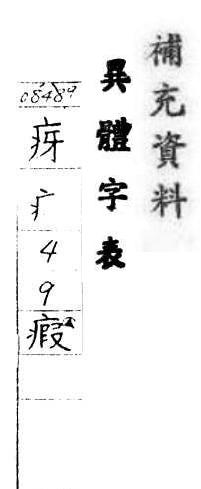 補充資料
異體字表
08489
疨
疒
4
9
瘕